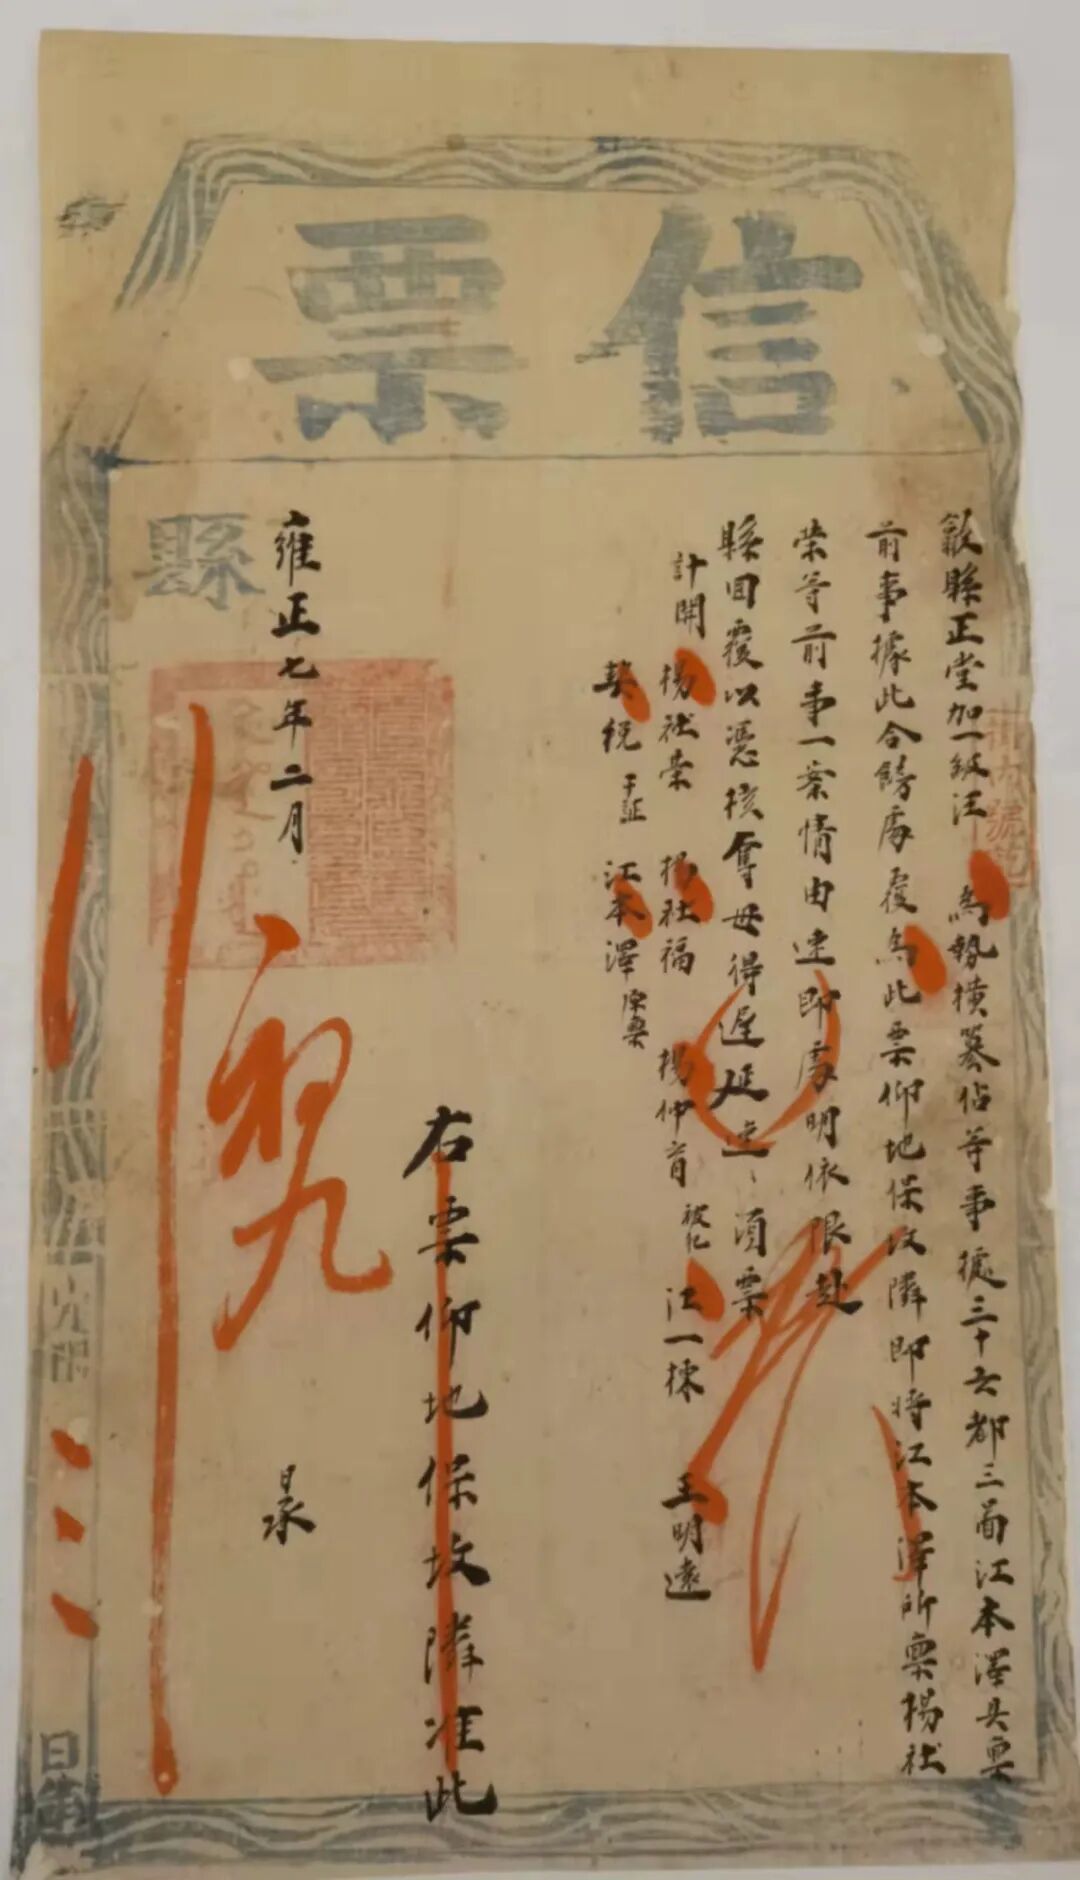 信票
歙縣正堂加一級汪 為勢橫篡佔等事據三十六都三啚江本澤具稟
前事據此合飭處覆為此票仰地保坟隣即將江本澤所稟楊社
榮等前事一案情由速即處明依限赴
縣回覆以憑核奪毋得遲延速〻須票
計開 楊社榮 楊社福 楊仲育 被化 江一棟 王明遠
契稅 干証 江本澤 原稟
右票仰地保坟隣准此
雍正七年二月 初九 日承
縣